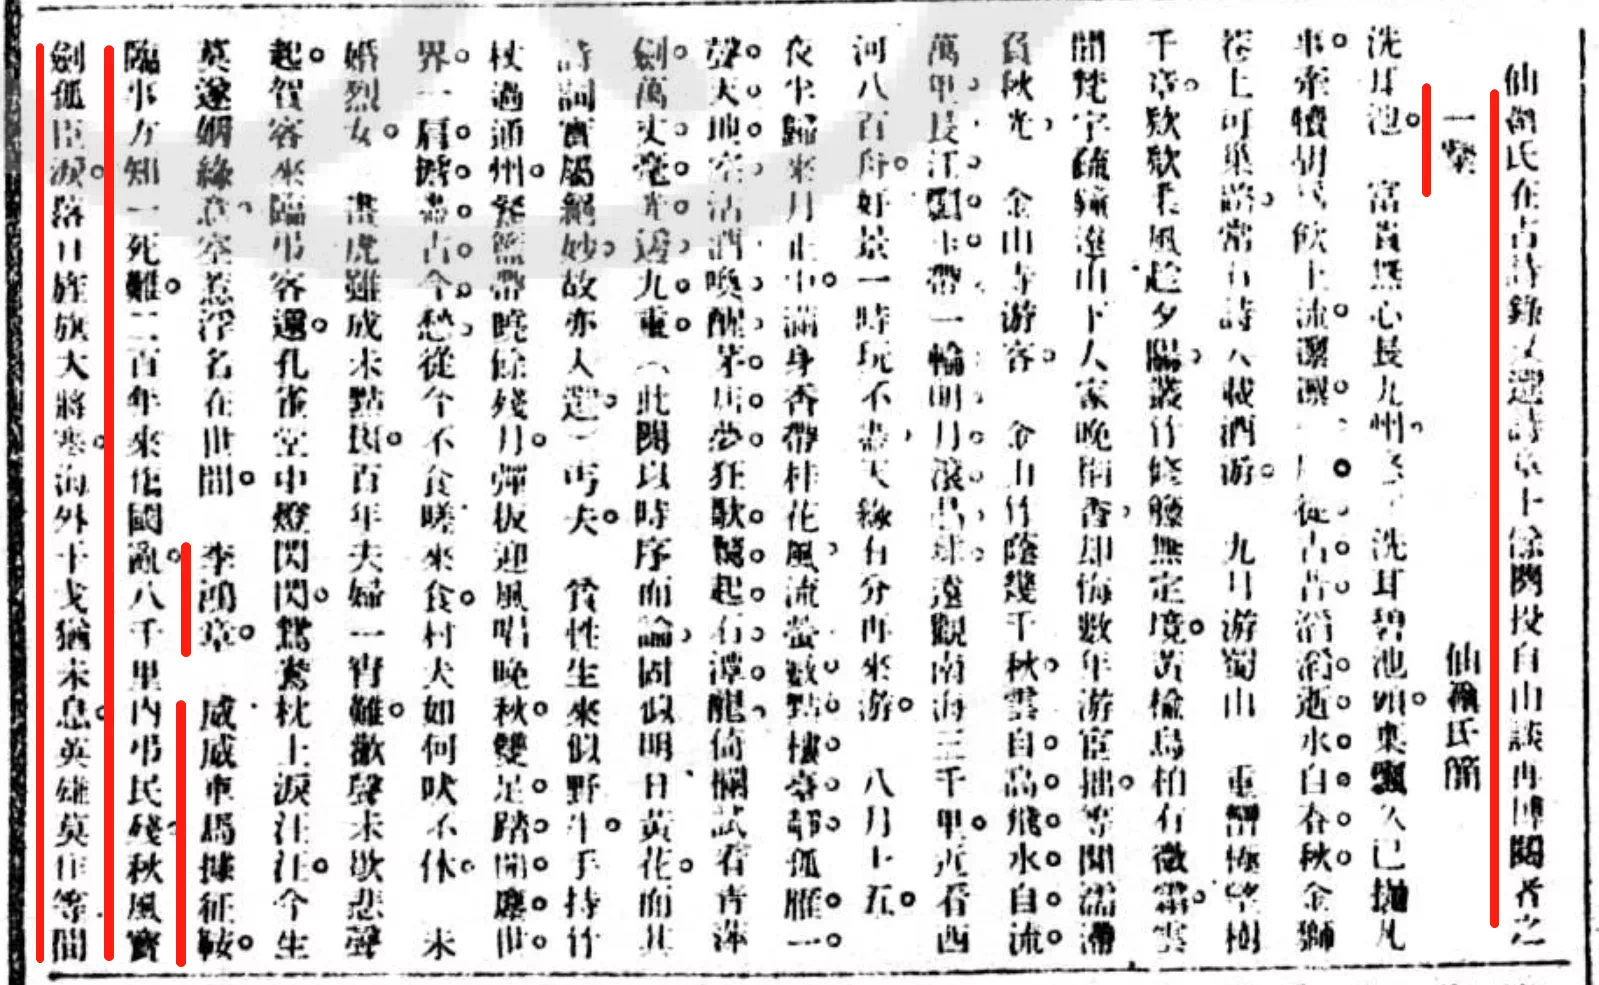 仙源氏在古詩錄又選詩章十餘閱投自由談再博閱者之
一粲　　仙源氏簡
洗耳池　富貴無心長九州　洗耳碧池頭棄瓢久已拋凡
事牽犢胡為飲上流潔潔　從古古滔滔逝水自春秋金獅
巷上可巢路常有詩人載酒游　九月游蜀山　重疊極望樹
千章欵欵手風趁夕陽叢竹修藤無定境黃榆烏柏有微霜雲
開梵宇疏鐘遠山下人家晚稻香却悔數年游宦拙等閒濡滯
負秋光　金山寺游客　金山竹蔭幾千秋雲自高飛水自流
萬里長江飄玉帶一輪明月滾昌球遠觀南海三千里近看西
河八百舟好景一時玩不盡天緣有分再來游　八月十五
夜坐歸來月正中滿身香帶桂花風流螢數點樓臺靜孤雁一
聲天地空沽酒喚醒茅店夢狂歌驚起石潭龍倚欄試看青萍
劍萬丈毫光透九重（此闋以時序而論固似明日黃花而其
詩詞實屬絕妙故亦入選）丐夫　賀性生來似野牛手持竹
杖過通州飯籃帶曉餘殘月彈板迎風唱晚秋雙足踏開塵世
界一肩擔盡古今愁從今不食嗟來食村犬如何吠不休　未
婚烈女　畫虎雖成未點斑百年夫婦一宵難歡聲未歇悲聲
起賀客來臨弔客還孔雀堂中燈閃閃鴛鴦枕上淚汪汪今生
莫遂姻緣意空惹浮名在世間　李鴻章　威威車馬據征鞍
臨事方知一死難二百年來傷國亂八千里內弔民殘秋風寶
劍孤臣淚落日旌旗大將寒海外干戈猶未息英雄莫作等閒